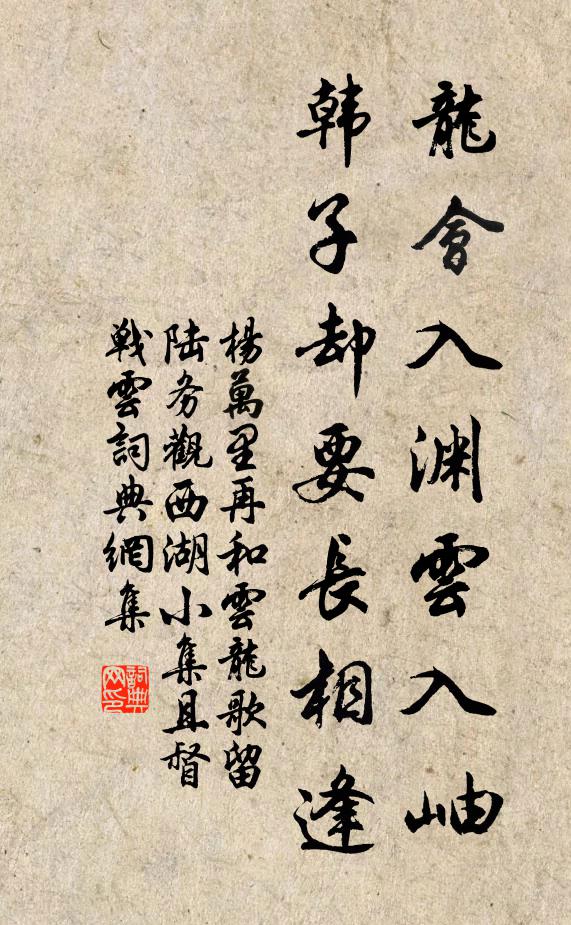 龍會入淵雲入岫
韩子却要長相逢
楊萬里再和雲龍歌留
陆务觀西湖小集且督
戰雲詞典網集
詞典
网印